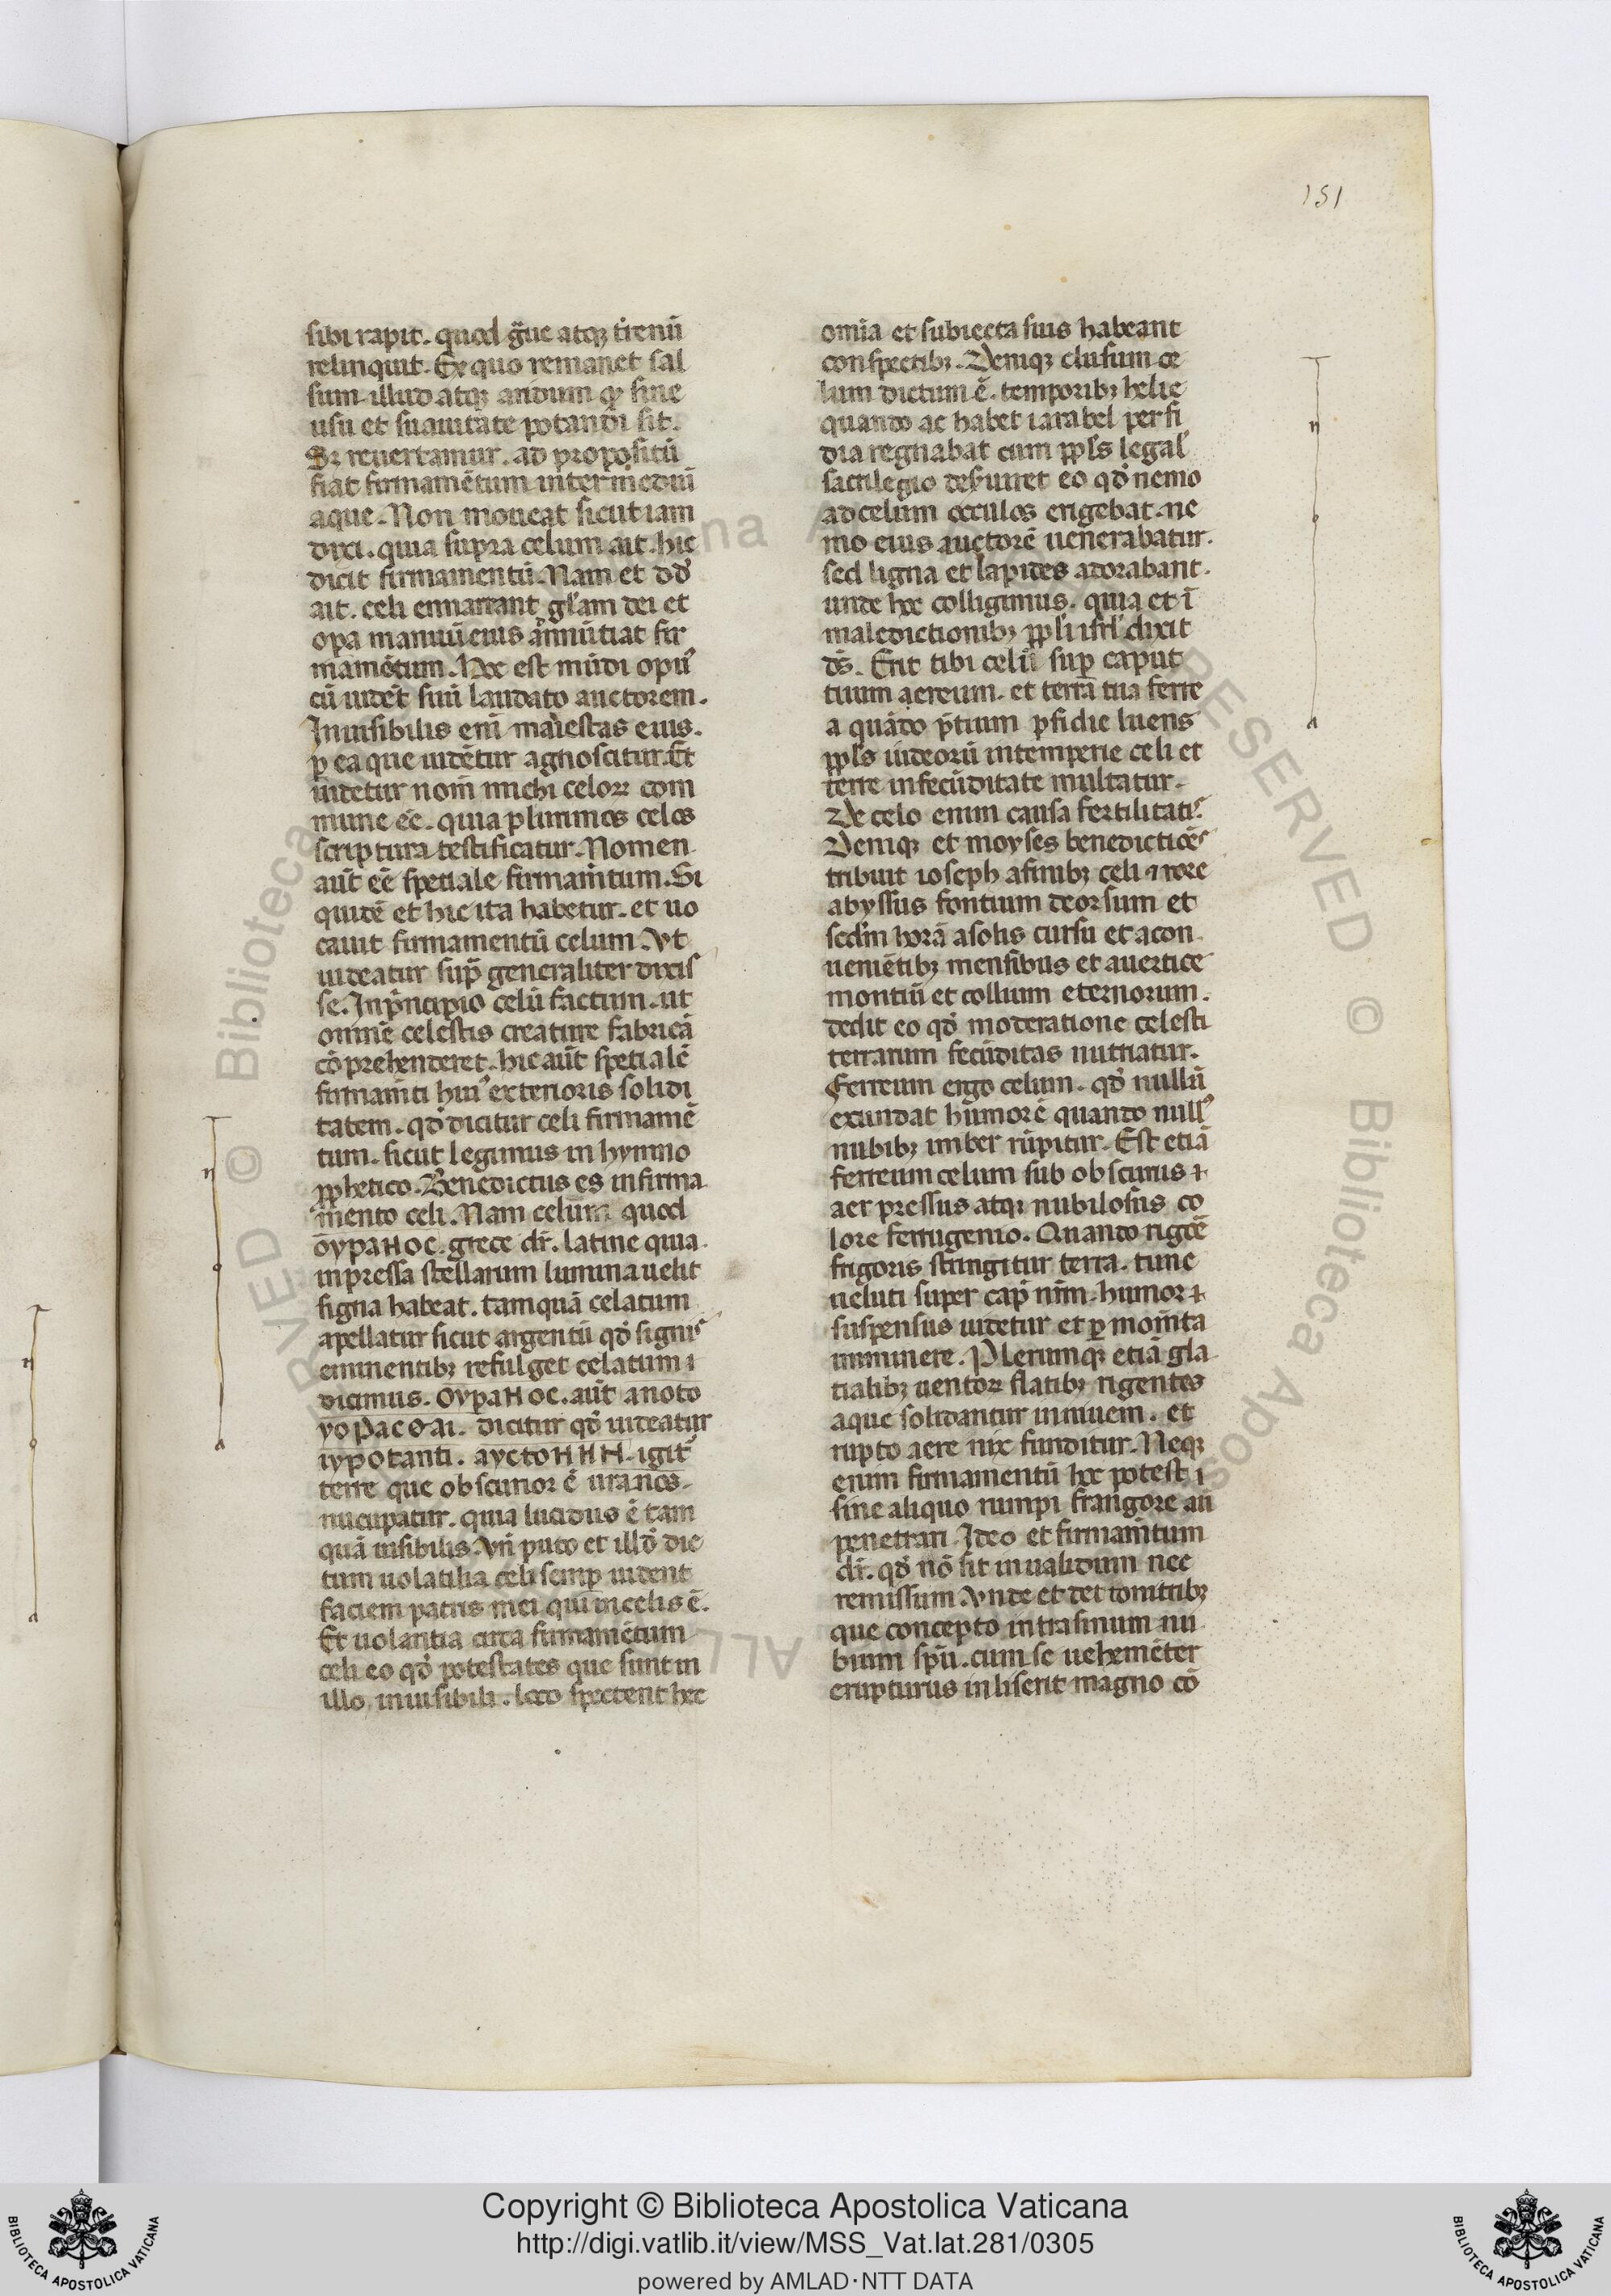 151
sibi rapit. quod g̃ue atqꝫ t̾renũ
relinquit. Ex quo remanet sal
sum illud atqꝫ aridum qꝫ sine
usu et suauitate potandi sit.
Sꝫ reuertamur. ad propositũ
fiat firmamẽtum intermediũ
aque. Non moueat sicut iam
dixi. quia supra celum ait. hic
dicit firmamentũ. Nam et dď
ait. celi ennarrant gl̃am dei et
opa manuũ eius ãnnũtiat fir
mamẽtum. Hoc est mũdi opuˢ
cũ uidẽt suũ laudato auctorem.
Inuisibilis eni᷉ maiestas eius.
ꝑ ea que uidẽtur agnoscitur. Et
uidetur nom̃ michi celoꝝ com
mune eẽ. quia plurimos celos
scriptura testificatur. Nomen
aut̃ eẽ spetiale firmam̃tum. Si
quidẽ et hic ita habetur. et uo
cauit firmamentũ celum. Vt
uideatur supͣ generaliter dixis
se. In pͥncipio celũ factum. ut
omnẽ celestis creature fabricã
cõprehenderet. hic aut̃ spetialẽ
firmam̃ti huiˀ exterioris solidi
tatem. qď dicitur celi firmamẽ
tum. sicut legimus in hymno
ꝓphetico. Benedictus es in firma
mento celi. Nam celum quod
oypaHoc. grece dr̃. latine quia
inpressa stellarum lumina uelut
signa habeat. tamquã celatum
apellatur sicut argentũ qď signiˢ
eminentibꝫ refulget celatum
dicimus. OypaHoc. aut̃ apoto
yopacΘai. dicitur qď uideatur
iypotanti. ayctoHHH. igit̃
terre que obscurior ẽ uranos.
nucupatur. quia lucidus ẽ tam
quã uisibilis. Vñ puto et illď dic
tum uolatilia celi semꝑ uident
faciem patris mei qui in celis ẽ.
Et uolantia circa firmamẽtum
celi eo qď potestates que sunt in
illo inuisibili. loco spectent hec
omĩa et subiecta suis habeant
conspectibꝫ. Deniqꝫ clusum ce
lum dictum ẽ. temporibꝫ helie
quando ac habet iarabel perfi
dia regnabat cum ppľs legal̾
sacrilegio des̾uiret eo qď nemo
ad celum occulos erigebat. ne
mo eius auctorẽ uenerabatur.
sed ligna et lapides adorabant.
unde hoc colligimus. quia et ĩ
maledictionibꝫ ppľi isrľ dixit
dš. Erit tibi celũ suꝑ caput
tuum aereum. et terrã tua ferre
a quãdo p̃tium ꝑfidie luens
ppľs iudeorũ intemperie celi et
terre infecũditate multatur.
De celo enim causa fertilitatiˢ
Deniqꝫ et moyses benedictiõeˢ
tribuit ioseph afinibꝫ celi ⁊ rore
abyssus fontium deorsum et
sedm̃ horã asolis cursu et acon
ueniẽtibꝫ mensibus et auertice
montiũ et collium eternorum.
dedit eo qď moderatione celesti
terrarum fecũditas nutriatur.
Ferreum ergo celum. qď nullũ
exundat humorẽ quando nullˢ
nubibꝫ imber rũpitur. Est etiã
ferreum celum sub obscurus ⁊
aer pressus atqꝫ nubilosus co
lore ferrugenio. Quando rigoẽ
frigoris stringitur terra. tunc
ueluti super cap̃ nr̃m humor ⁊
suspensus uidetur et ꝑ mom̃ta
imminere. Plerumqꝫ etiã gla
cialibꝫ uentoꝝ flatibꝫ rigentes
aque solidantur in niuem. et
rupto aere nix funditur. Neqꝫ
enim firmamentũ hoc potest
sine aliquo rumpi frangore aũ
penetrari. Ideo et firmam̃tum
dr̃. qď nõ sit inualidum nec
remissum. Vnde et det tonitribꝫ
que concepto intra sinum nu
bium spũ. cum se uehemẽter
erupturus inliserit magno cõ
n
o
t
a
n
o
t
a
n
o
t
a
© Biblioteca Apostolica Vaticana ALL RIGHTS RESERVED
Copyright © Biblioteca Apostolica Vaticana
http://digi.vatlib.it/view/MSS_Vat.lat.281/0305
powered by AMLAD·NTT DATA
BIBLIOTECA APOSTOLICA VATICANA
BIBLIOTECA APOSTOLICA VATICANA